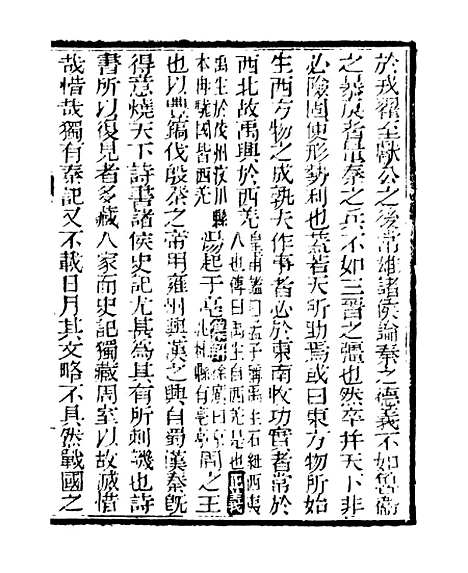 於戎翟至獻公之後常雄諸侯論秦之德義不如魯衛
之暴戾者量秦之兵不如三晉之彊也然卒并天下非
必險固便形勢利也蓋若天所助焉或曰東方物所始
生西方物之成孰夫作事者必於東南收功實者常於
西北故禹興於西羌皇甫謐曰孟子稱禹生石紐西夷
人也傳曰禹生自西羌是也正義
禹生於茂州汶川縣
本冉駹國皆西羌湯起于亳集解徐廣曰京
兆杜縣有亳亭周之王
也以豐鎬伐殷秦之帝用雍州興漢之興自蜀漢秦既
得意燒天下詩書諸侯史記尤甚為其有所刺譏也詩
書所以復見者多藏人家而史記獨藏周室以故滅惜
哉惜哉獨有秦記又不載日月其文略不具然戰國之